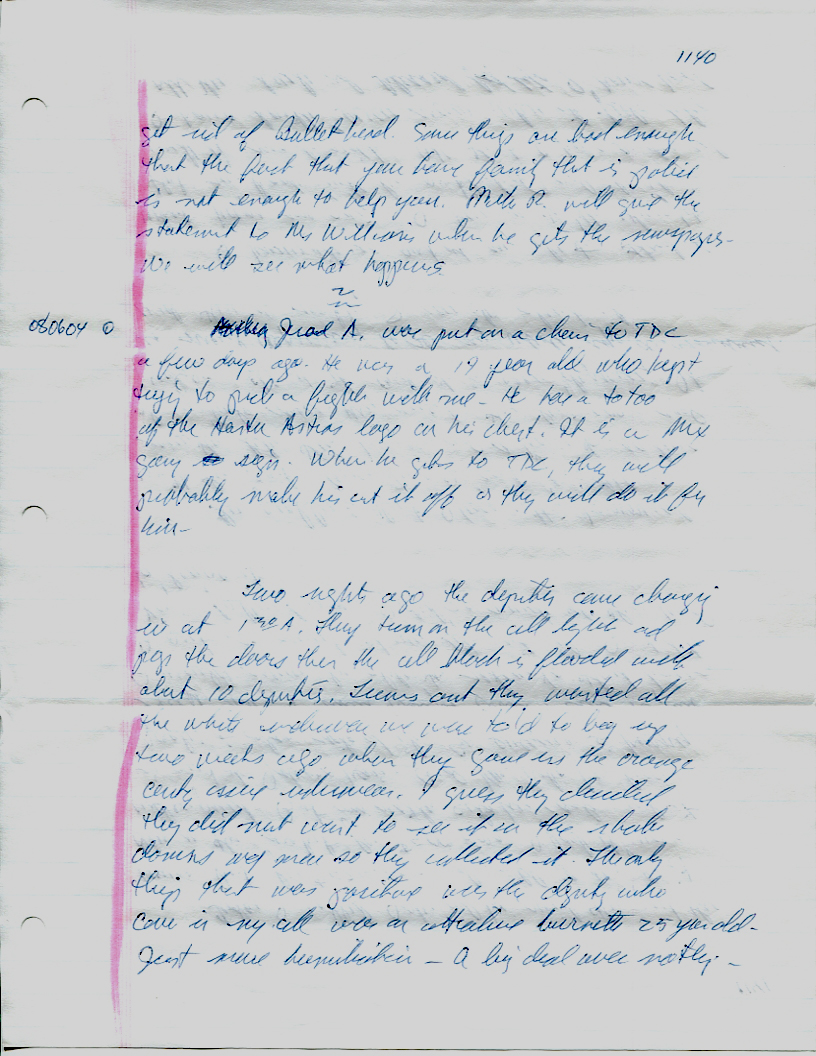 1140
get rid of Bullethead. Some things are bad enough
that the fact that you have family tht is police
is not enough to help you. R. will give the
statement to Ms Williams when he gets the newspaper-
We will see what happens
080604 Juan A. was put on a chain to TDC
a few days ago. He was a 19 year old who kept
trying to pick a fight with me- He has a totoo
of the Astros logo on his chest. It is a Mex
gang sign. When he gets to TDC, they will
probably make him cut it off or they will do it for
him-
Two nights ago the deputies came charging
in at 1 30 A. They turn on the cell lights ad
pop the doors then the cell block is flooded with
abut 10 deputies. Turns out they wanted all
the white underwear we were told to bag up
two weeks ago when they gave us the orange
county issue underwear. I guess they decided
they did not want to see it in the shake
downs any more so they collected it. The only
thing that was positive was the deputy who
came in my cell was an attractive burnette 25 year old-
Just more humiliation - A big deal over nothing-